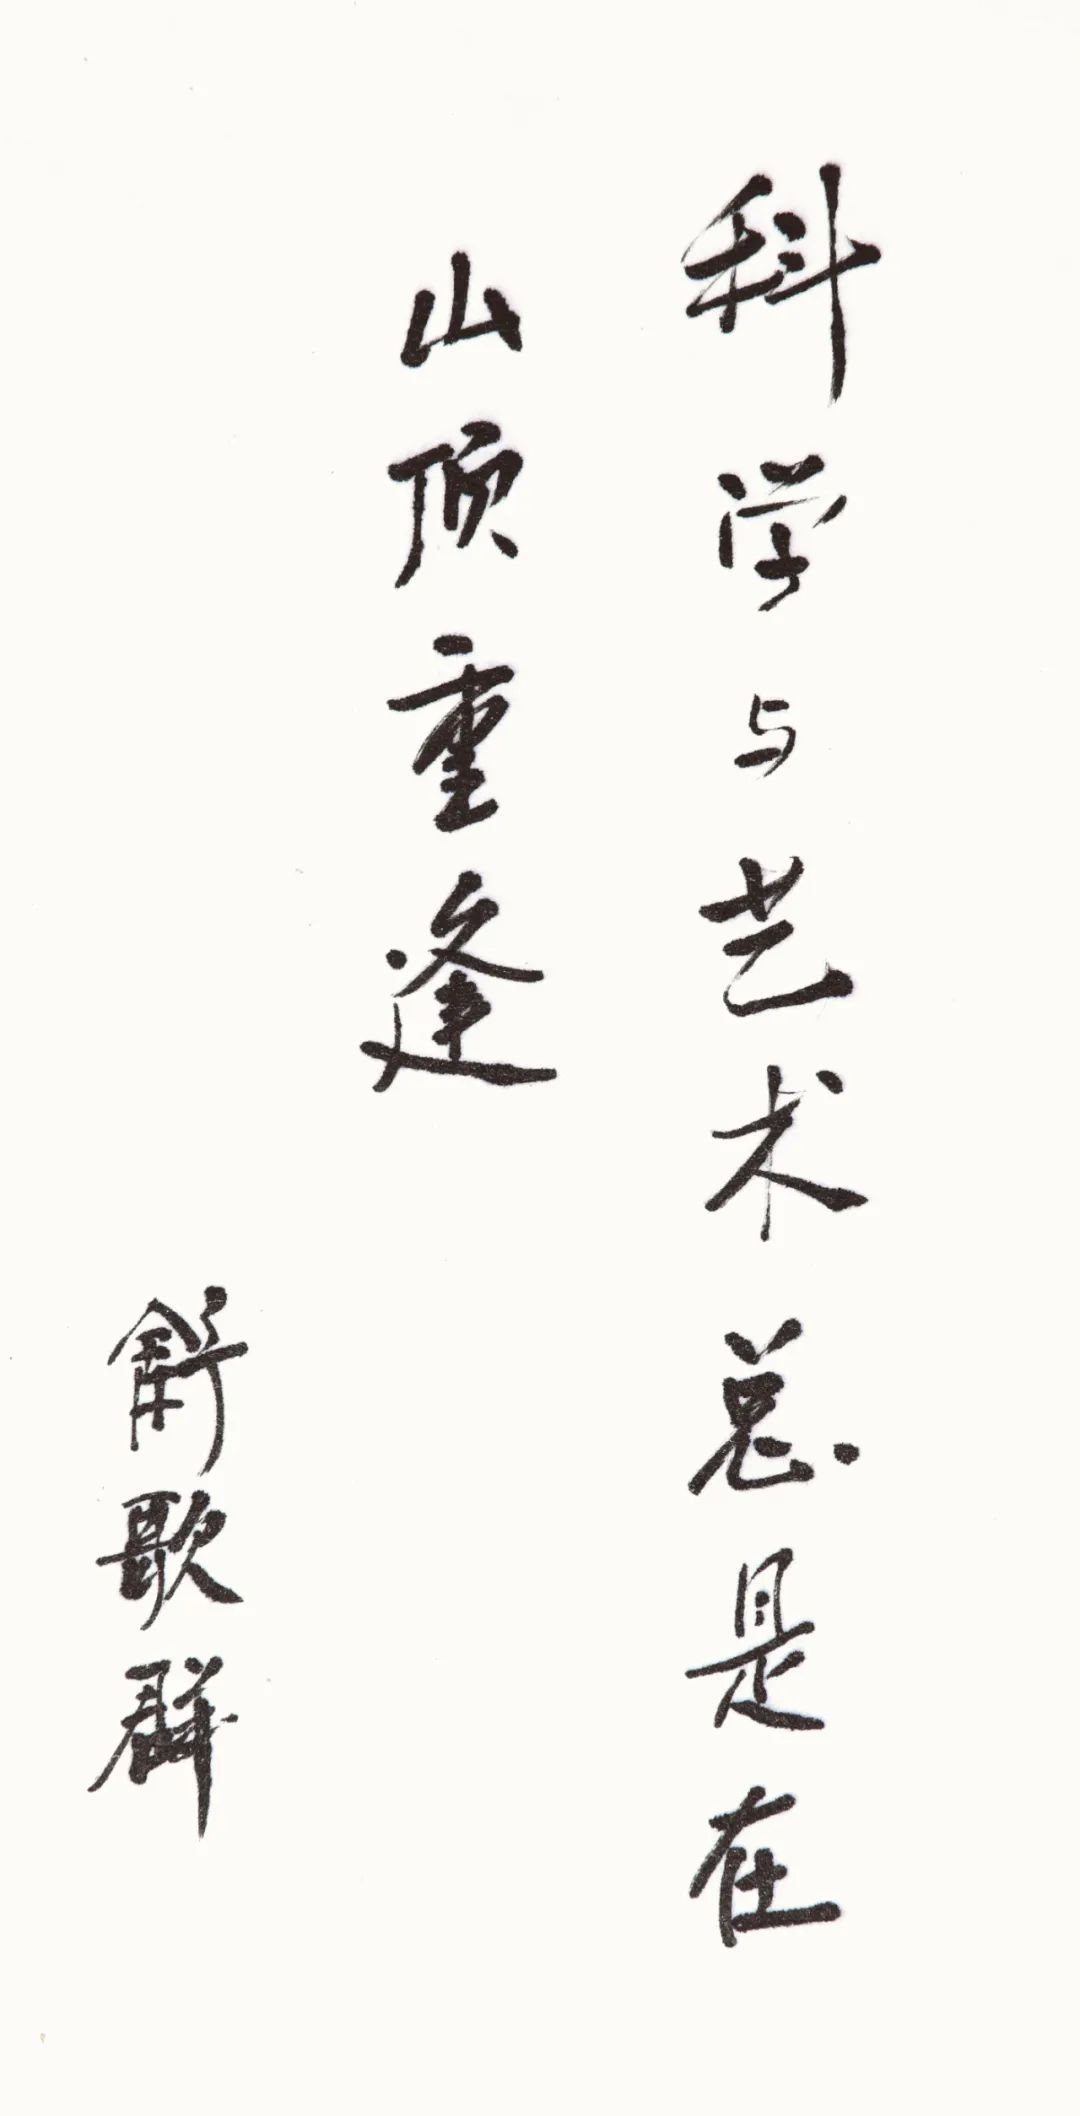 科学与艺术总是在
山顶重逢
舒歌群